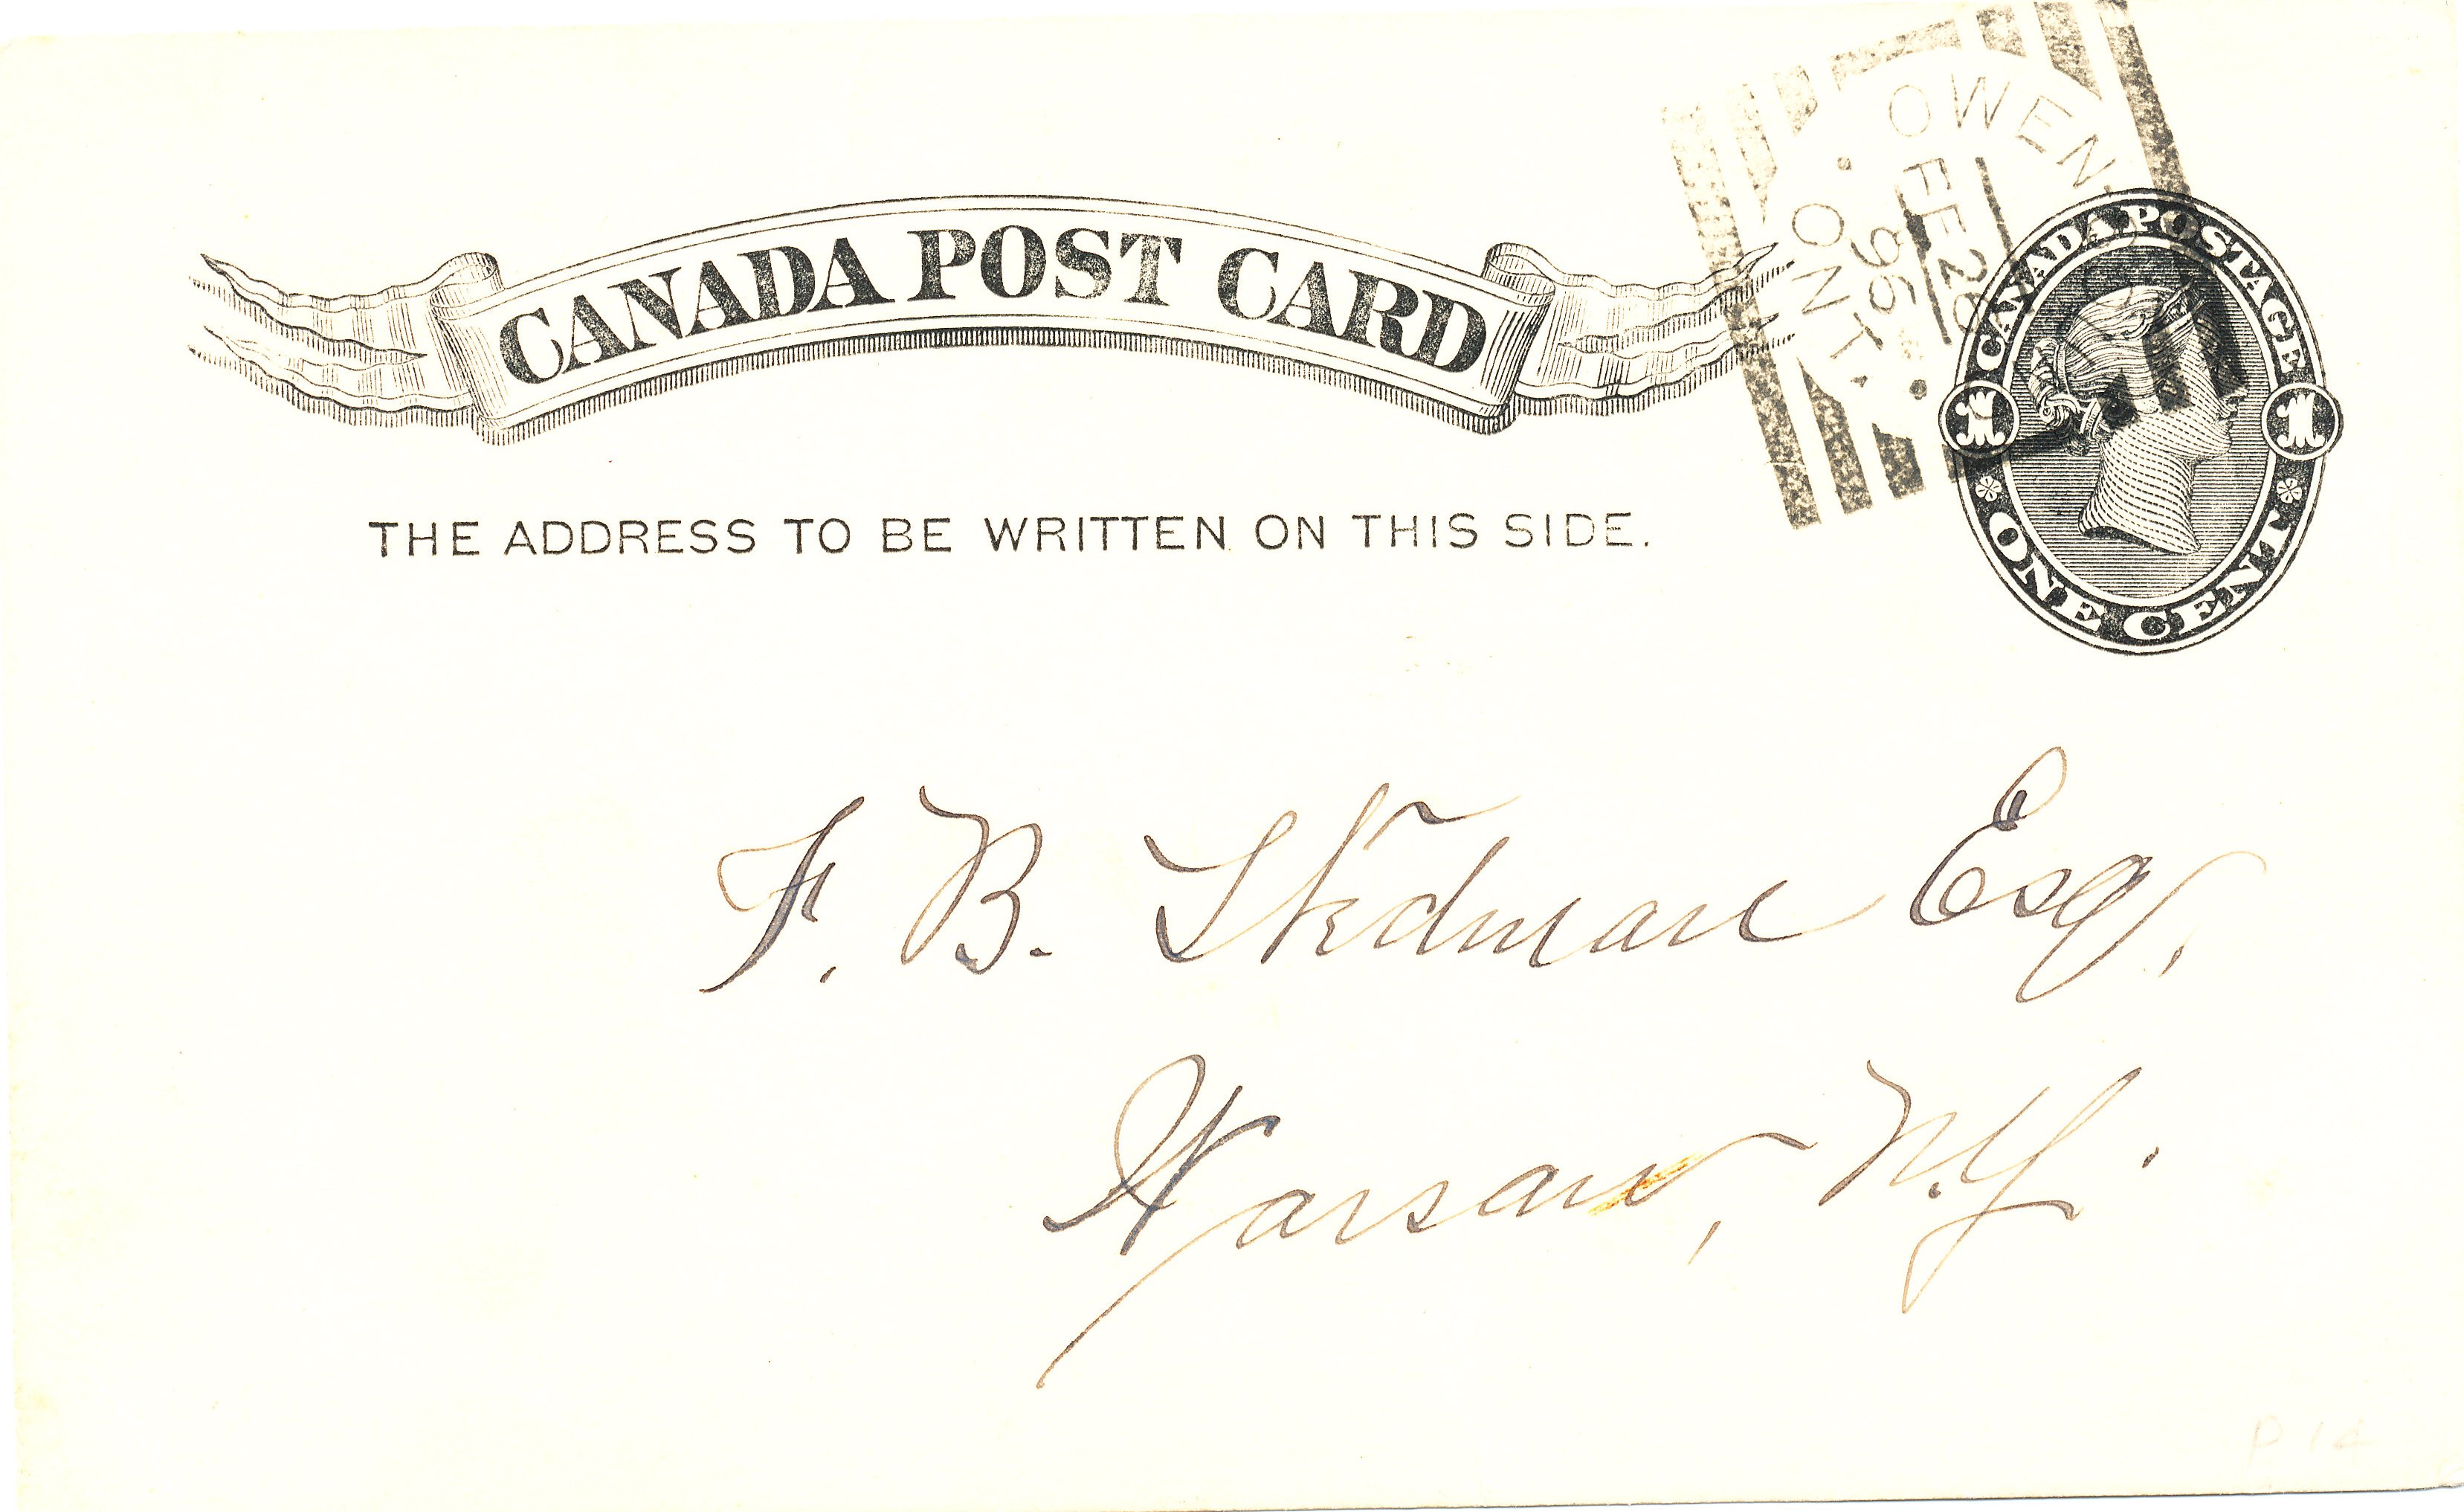 CANADA POST CARD
OWEN
FE 26
96
ONT.
CANADA POSTAGE
1 1
ONE CENT
THE ADDRESS TO BE WRITTEN ON THIS SIDE.
F. B. Stedman Esq.
Warsaw, N.Y.